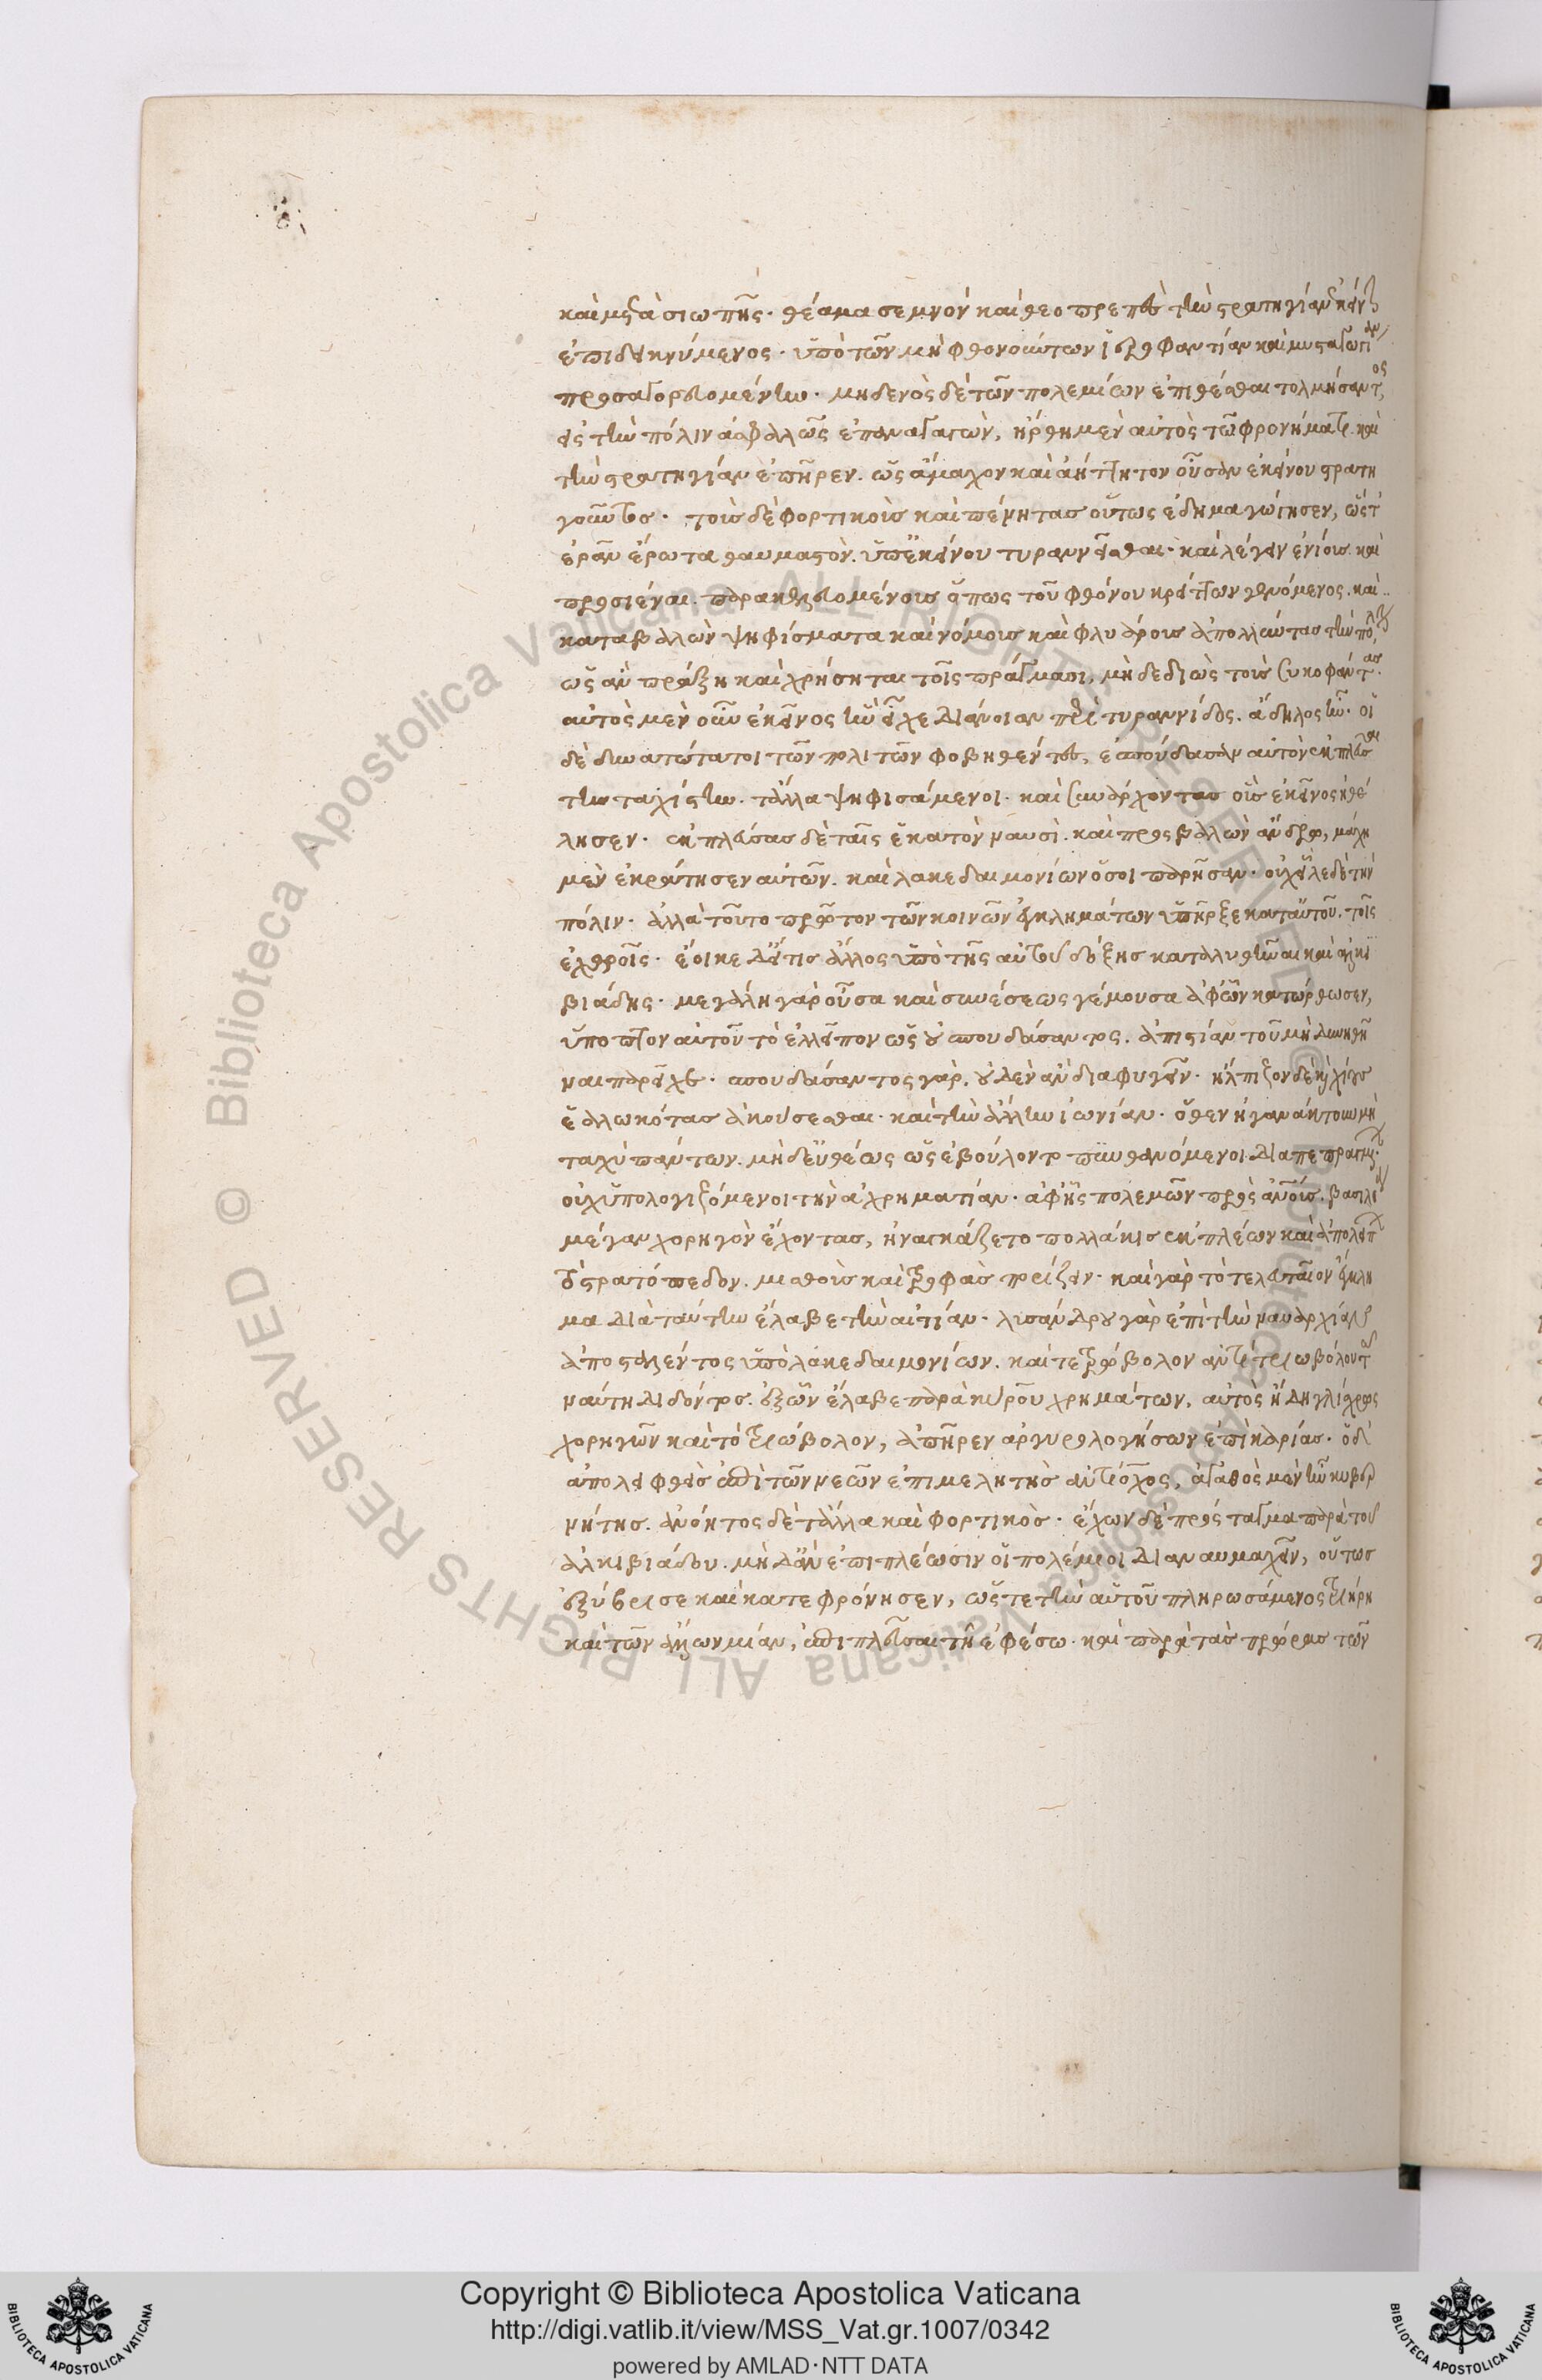 καὶ μετὰ σιωπῆς· θέαμα σεμνὸν καὶ θεοπρεπὲς τὴν στρατηγίαν ἐκείνην
ἐπιδεικνύμενος· ὑπὸ τῶν μὴ φθονούντων ἱεροφαντίαν καὶ μυσταγωγίαν
προσαγορευομένην· μηδενὸς δὲ τῶν πολεμίων ἐπιθέσθαι τολμήσαντος
εἰς τὴν πόλιν ἀσφαλῶς ἐπαναγαγὼν, ἤρθη μὲν αὐτὸς τῶ φρονήματι. καὶ
τὴν στρατηγίαν ἐπῆρεν. ὡς ἄμαχον καὶ ἀήττητον οὖσαν ἐκείνου στρατη
γοῦντος· τοὺς δὲ φορτικοὺς καὶ πένητας οὕτως ἐδημαγώγησεν, ὥστ'
ἐρᾶν ἔρωτα θαυμαστὸν. ὑπ' ἐκείνου τυραννεῖσθαι· καὶ λέγειν ἐνίους. καὶ
προσιέναι. παρακελευομένους ὅπως τοῦ φθόνου κρείττων γενόμενος. καὶ
καταβαλὼν ψηφίσματα καὶ νόμους καὶ φλυάρους ἀπολλύντας τὴν πόλιν
ὡς ἂν πράξη καὶ χρήσηται τοῖς πράγμασι, μὴ δεδιὼς τοὺς συκοφάντας.
αὐτὸς μὲν οὖν ἐκεῖνος ἣν εἶχε διάνοιαν περὶ τυραννίδος. ἄδηλος ἦν· οἱ
δὲ δυνατώτατοι τῶν πολιτῶν φοβηθέντες, ἐσπούδασαν αὐτὸν ἐκπλεῦσαι
τὴν ταχίστην. τἄλλα ψηφισάμενοι· καὶ συνάρχοντας οὓς ἐκεῖνος ἠθέ
λησεν· ἐκπλεύσας δὲ ταῖς ἑκατὸν ναυσὶ. καὶ προσβαλὼν ἄνδρω, μάχη
μὲν ἐκράτησεν αὐτῶν. καὶ λακεδαιμονίων ὅσοι παρῆσαν· οὐχ εἷλε δὲ τὴν
πόλιν· ἀλλὰ τοῦτο πρῶτον τῶν κοινῶν ἐγκλημάτων ὑπῆρξε κατ' αὐτοῦ. τοῖς
ἐχθροῖς· ἔοικε δ' εἴ τις ἄλλος ὑπὸ τῆς αὐτοῦ δόξης καταλυθῆναι καὶ ἀλκι
βιάδης· μεγάλη γὰρ οὖσα καὶ συνέσεως γέμουσα ἀφ' ὧν κατώρθωσεν,
ὕποπτον αὐτοῦ τὸ ἐλλεῖπον ὡς οὐ σπουδάσαντος. ἀπιστίαν τοῦ μὴ δυνηθῆ
ναι παρεῖχε· σπουδάσαντος γὰρ. οὐδὲν ἂν διαφυγεῖν· ἤλπιζον δὲ καὶ χίους
ἑαλωκότας ἀκούσεσθαι· καὶ τὴν ἄλλην ἰωνίαν· ὅθεν ἠγανάκτουν μὴ
ταχὺ πάντων. μὴδ' εὐθέως ὡς ἐβούλοντο πυνθανόμενοι διαπεπραγμένων
οὐχ ὑπολογιζόμενοι τὴν ἀχρηματίαν· ἀφ' ἧς πολεμῶν πρὸς ἀνθρώπους. βασιλέα
μέγαν χορηγὸν ἔχοντας, ἠναγκάζετο πολλάκις ἐκπλέων καὶ ἀπολείπων
τὸ στρατόπεδον. μισθοὺς καὶ τροφὰς πορίζειν· καὶ γὰρ τὸ τελευταῖον ἔγκλη
μα διὰ ταύτην ἔλαβε τὴν αἰτίαν· λυσάνδρου γὰρ ἐπὶ τὴν ναυαρχίαν
ἀποσταλέντος ὑπὸ λακεδαιμονίων. καὶ τετρώβολον ἀντὶ τριωβόλου τῶ
ναύτη διδόντος. ἐξ ὧν ἔλαβε παρὰ κύρου χρημάτων, αὐτὸς ἤδη γλίσχρως
χορηγῶν καὶ τὸ τριώβολον, ἀπῆρεν ἀργυρολογήσων ἐπὶ καρίας· ὁ δ'
ἀπολειφθεὶς ἐπὶ τῶν νεῶν ἐπιμελητὴς ἀντίοχος, ἀγαθὸς μὲν ἦν κυβερ
νήτης. ἀνόητος δὲ τἄλλα καὶ φορτικὸς· ἔχων δὲ πρόσταγμα παρὰ τοῦ
ἀλκιβιάδου. μὴδ' ἂν ἐπιπλέωσιν οἱ πολέμιοι διαναυμαχεῖν, οὕτως
ἐξύβρισε καὶ κατεφρόνησεν, ὥστε τὴν αὑτοῦ πληρωσάμενος τριήρη
καὶ τῶν ἄλλων μίαν, ἐπιπλεῦσαι τῆ ἐφέσω· καὶ παρὰ τὰς πρώρας τῶν
Copyright © Biblioteca Apostolica Vaticana
http://digi.vatlib.it/view/MSS_Vat.gr.1007/0342
powered by AMLAD·NTT DATA